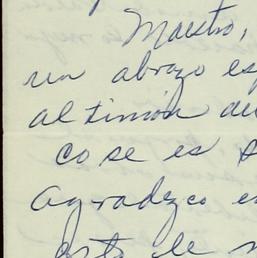 Maestro,
un abrazo es
al timón de
co se es
Agradezco e
esto le